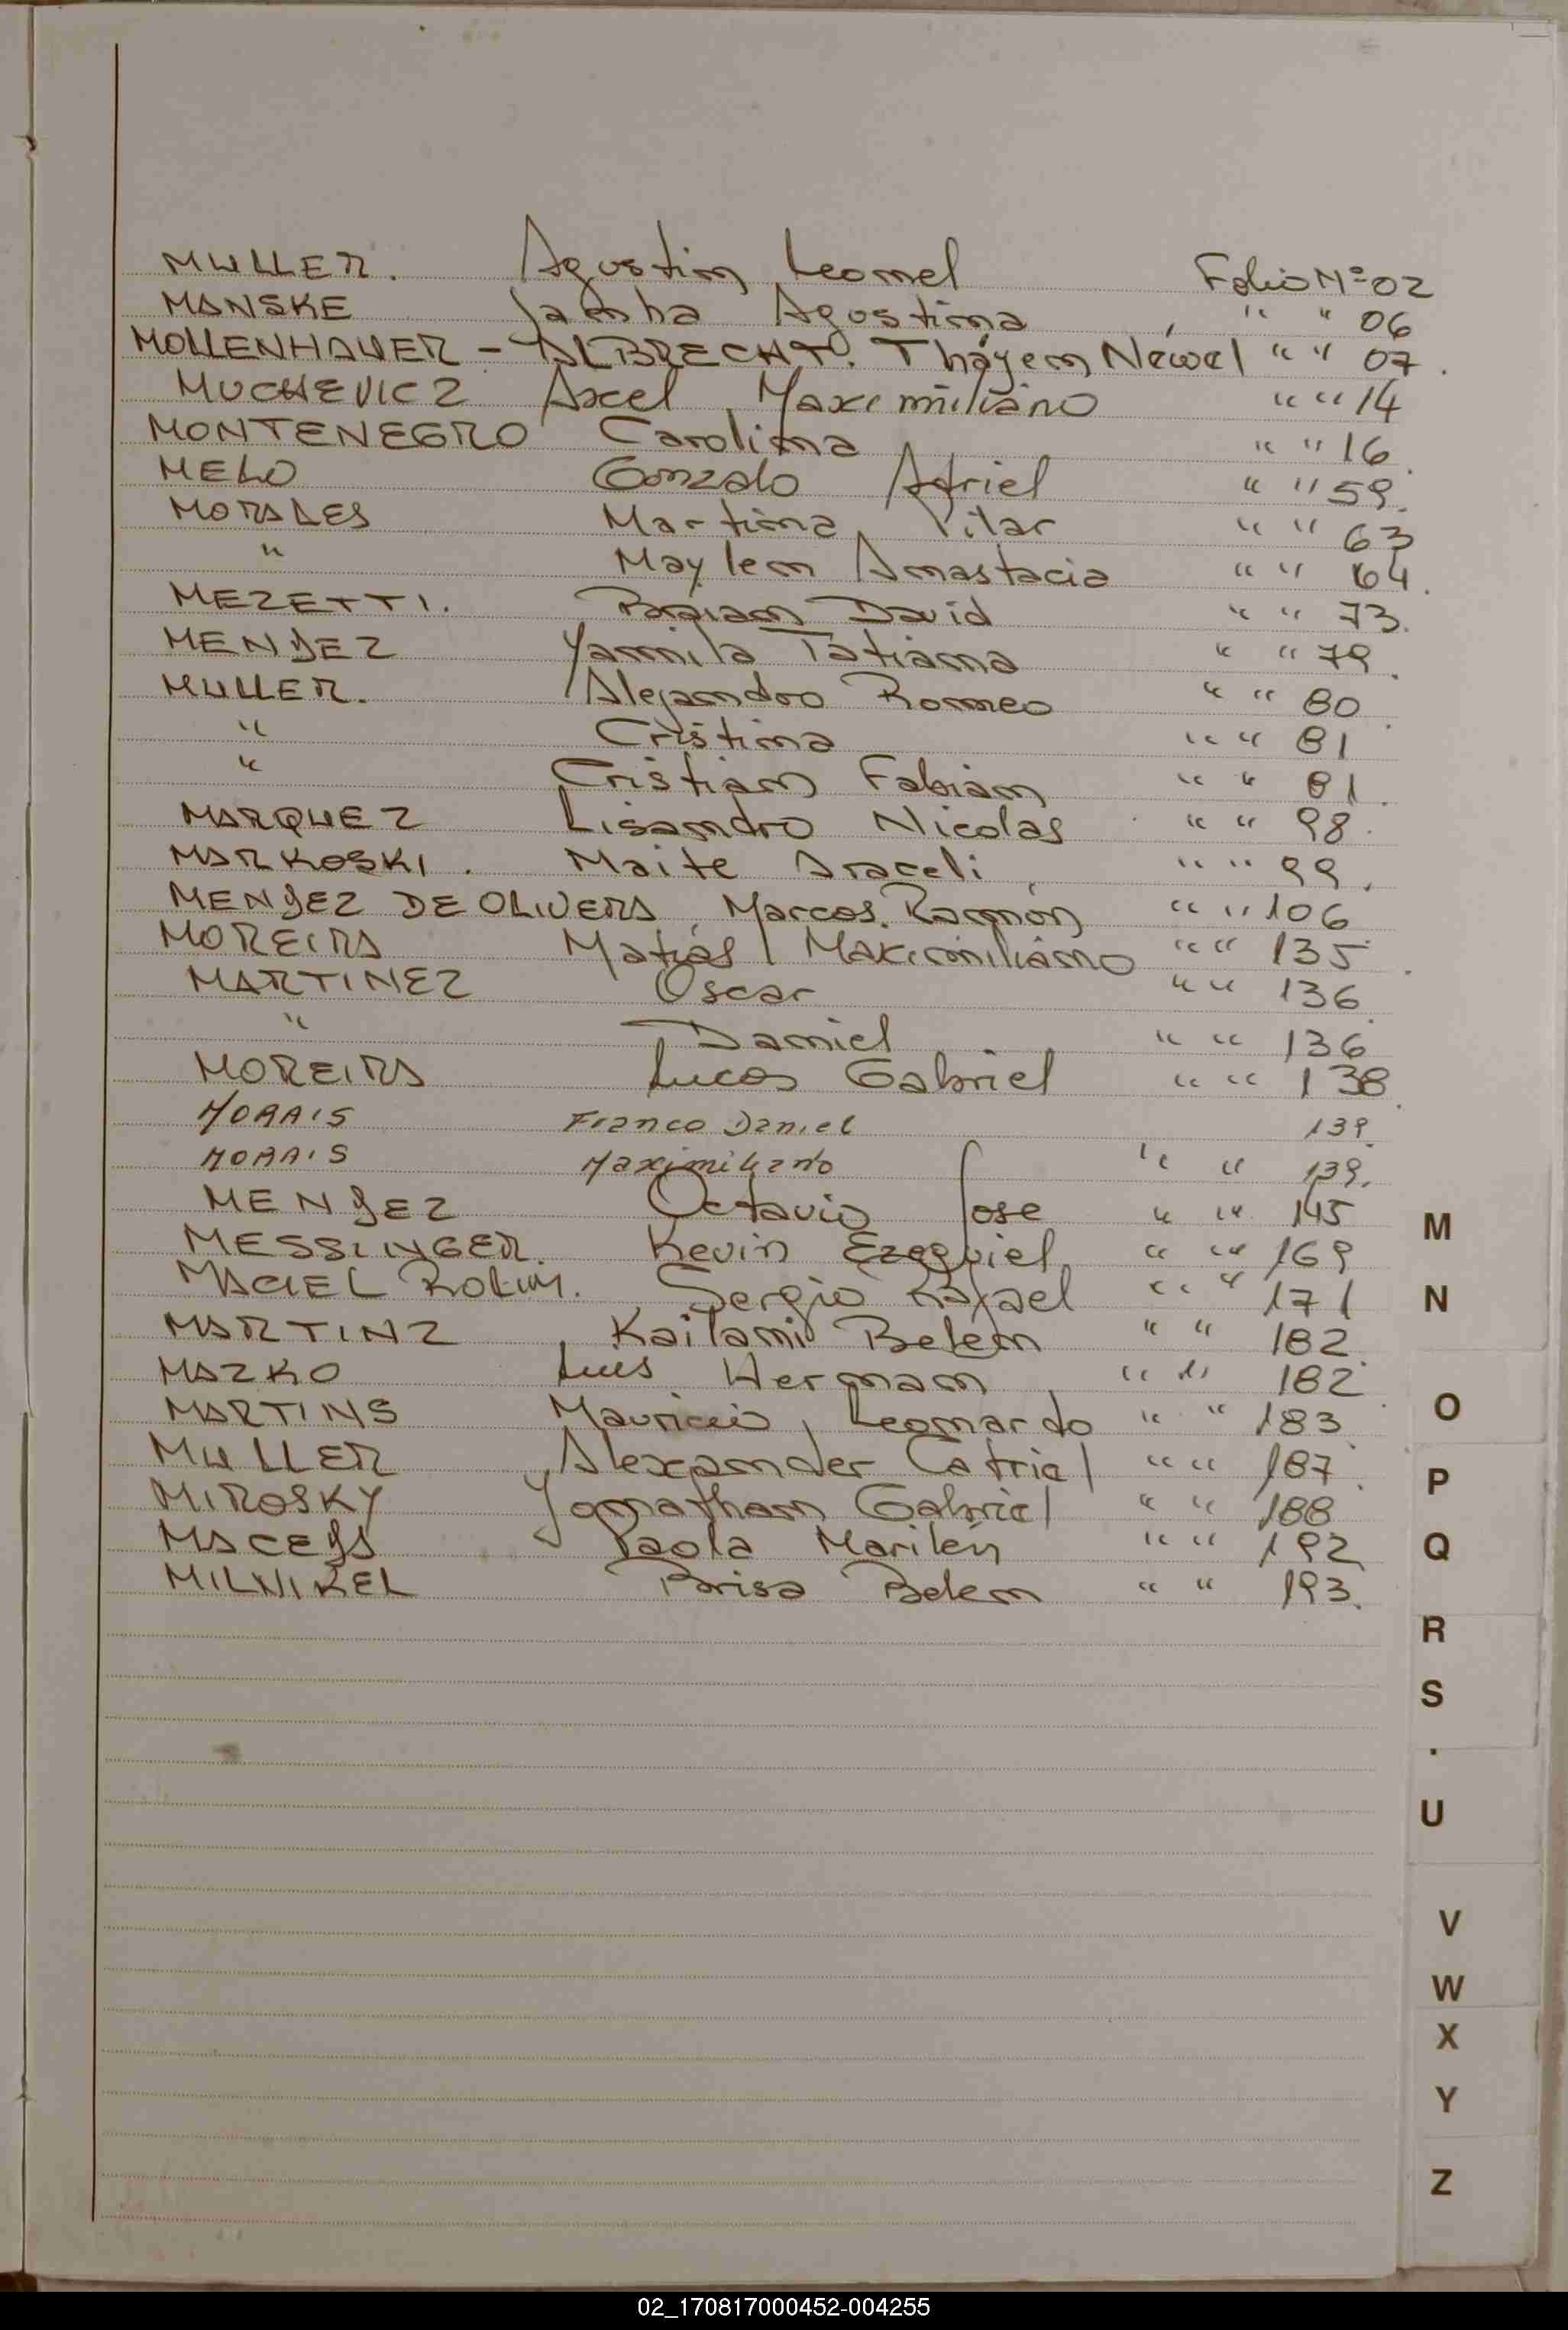 MULLER. Agustin Leonel Folio Nº 02
MANSKE Samha Agostina , " " 06
MOLLENHAUER - ALBRECHT. Thayem Newel " " 07.
MUCHEVICZ Axel Maximiliano " " 14
MONTENEGRO Carolina " " 16.
MELO Gonzalo Adriel " " 59.
MORALES Martina Pilar " " 63
" Maylen Anastacia " " 64.
MEZETTI. Braian David " " 73.
MENDEZ Yamila Tatiana " " 79.
MULLER. Alejandro Romeo " " 80.
" Cristina " " 81
" Cristian Fabian " " 81.
MARQUEZ Lisandro Nicolas " " 98.
MARKOSKI. Maite Araceli, " " 99.
MENDEZ DE OLIVERA, Marcos Ramón " " 106
MOREIRA Matias Maximiliano " " 135.
MARTINEZ Oscar " " 136.
" Daniel " " 136
MOREIRA Lucas Gabriel " " 138.
MORAIS Franco Daniel 139.
MORAIS Maximiliano " " 139.
MENDEZ Octavio Jose " " 145
MESSINGER. Kevin Ezequiel " " 169
MACIEL ROLIM. Sergio Rafael " " 171
MARTINZ Kailani Belen " " 182.
MAZKO Luis Hernan, " " 182
MARTINS Mauricio Leonardo " " 183.
MULLER Alexander Catriel " " 187.
MIROSKY Jonathan Gabriel " " 188
MACEDA Paola Marilén " " 192
MILNIKEL Brisa Belen " " 193.
M
N
O
P
Q
R
S
U
V
W
X
Y
Z
02_170817000452-004255